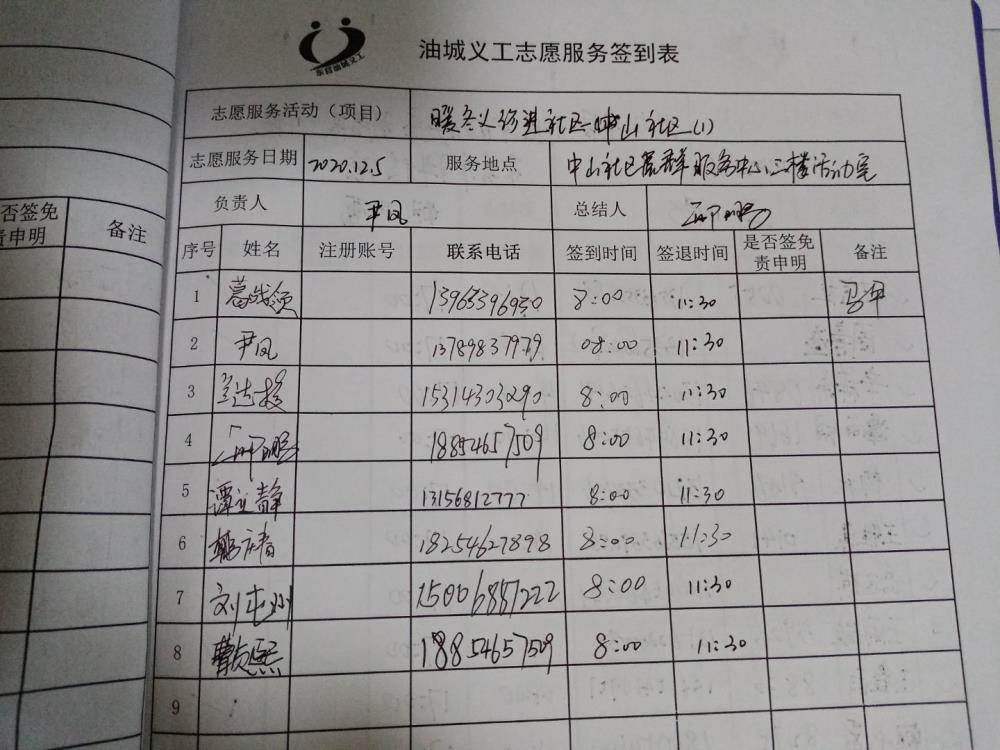 东营油城义工
油城义工志愿服务签到表
志愿服务活动（项目） 暖冬义修进社区-中山社区(1)
志愿服务日期 2020.12.5 服务地点 中山社区党群服务中心三楼活动室
负责人 尹凤 总结人
序号 姓名 注册账号 联系电话 签到时间 签退时间 是否签免责申明 备注
1 13963396930 8:00 11:30
2 尹凤 13789837979 08:00 11:30
3 15314303290 8:00 11:30
4 18854657509 8:00 11:30
5 谭 静 13156812777 8:00 11:30
6 18254627898 8:00 11:30
7 刘 15006887222 8:00 11:30
8 18854657509 8:00 11:30
9
否签免责申明 备注